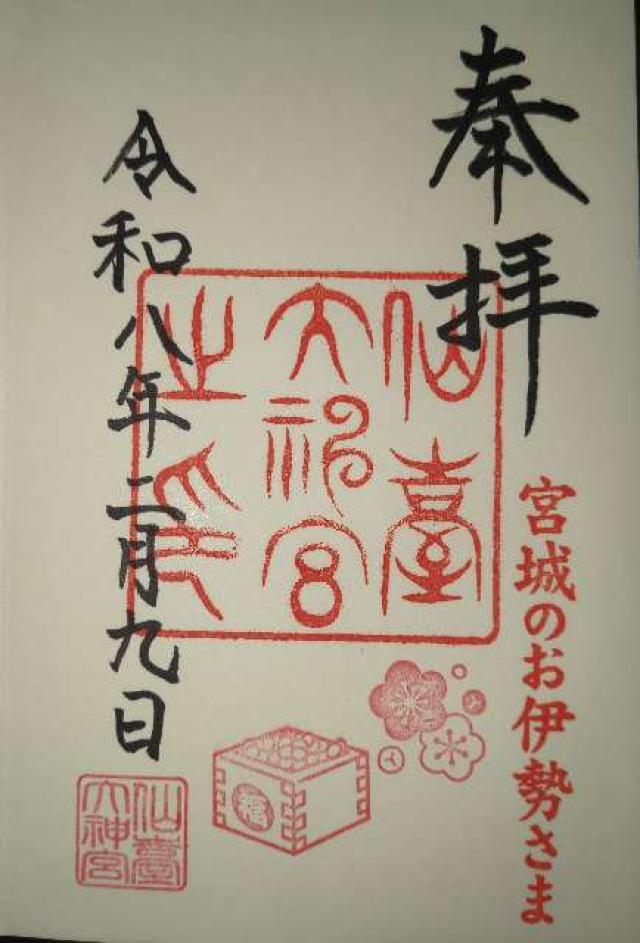 奉拝
宮城のお伊勢さま
仙臺
大神宮
之印
福
令和八年二月九日
仙臺
大神宮